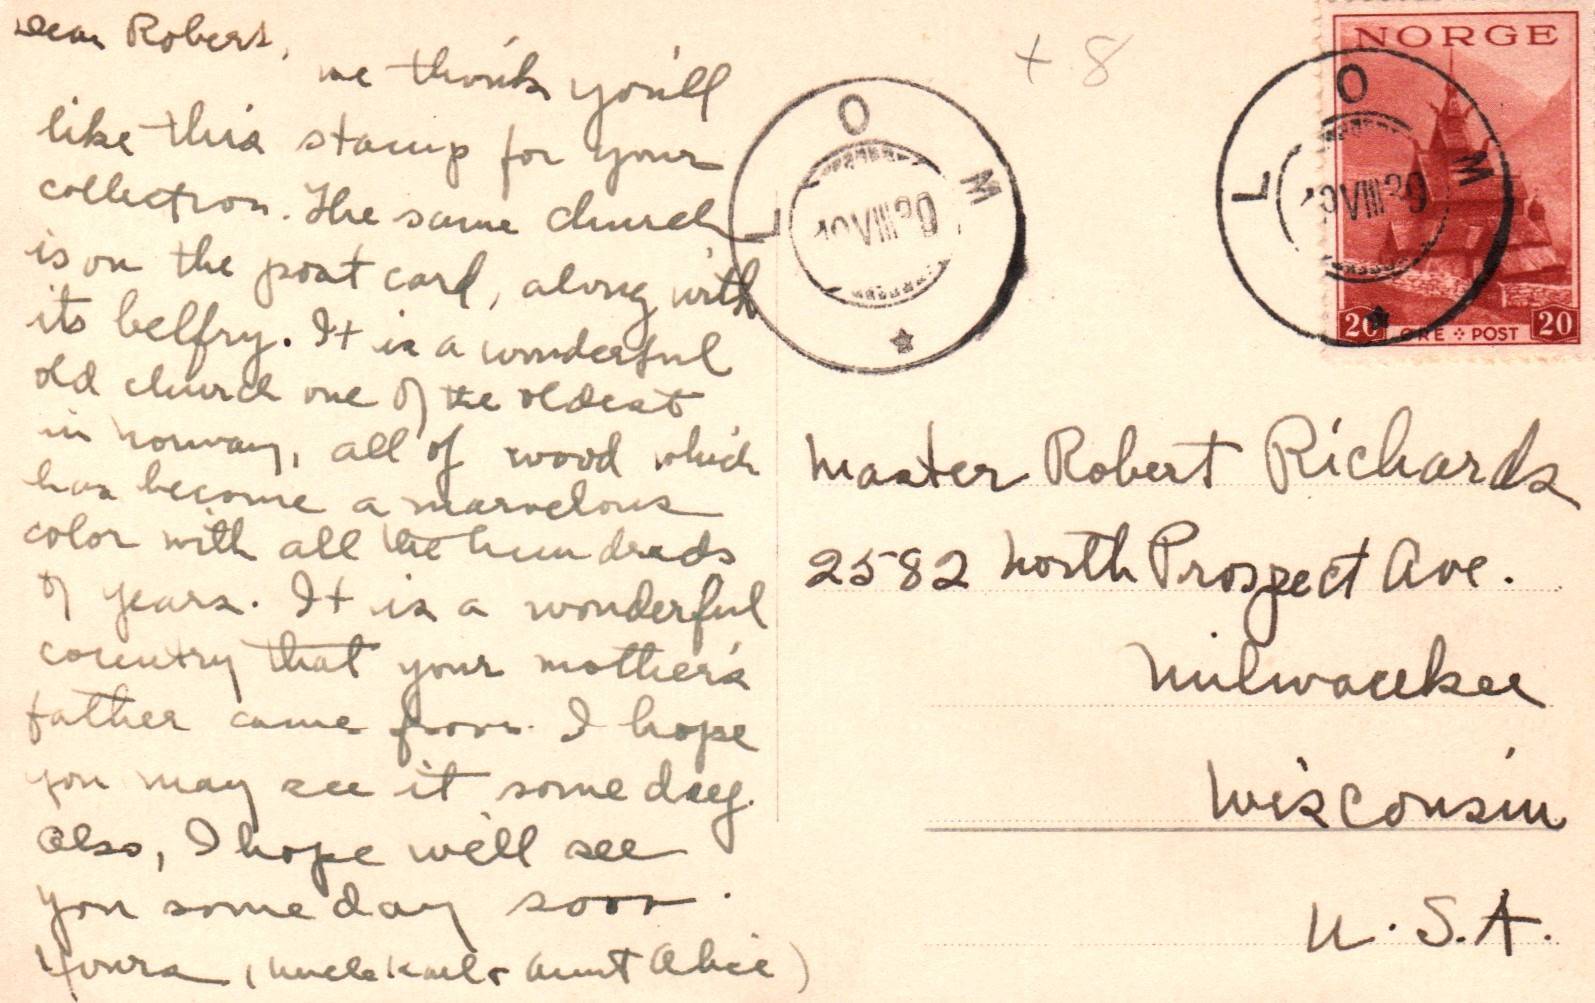 Dear Robert,
we think you'll
like this stamp for your
collection. The same church
is on the post card, along with
its belfry. It is a wonderful
old church one of the oldest
in Norway, all of wood which
has become a marvelous
color with all the hundreds
of years. It is a wonderful
country that your mother's
father came from. I hope
you may see it some day.
Also, I hope we'll see
you some day soon.
Yours (Uncle Karl & Aunt Alice)
+ 8
LOM
10 VIII 39
NORGE
LOM
10 VIII 39
20 ØRE POST 20
Master Robert Richards
2582 North Prospect Ave.
Milwaukee
Wisconsin
U.S.A.